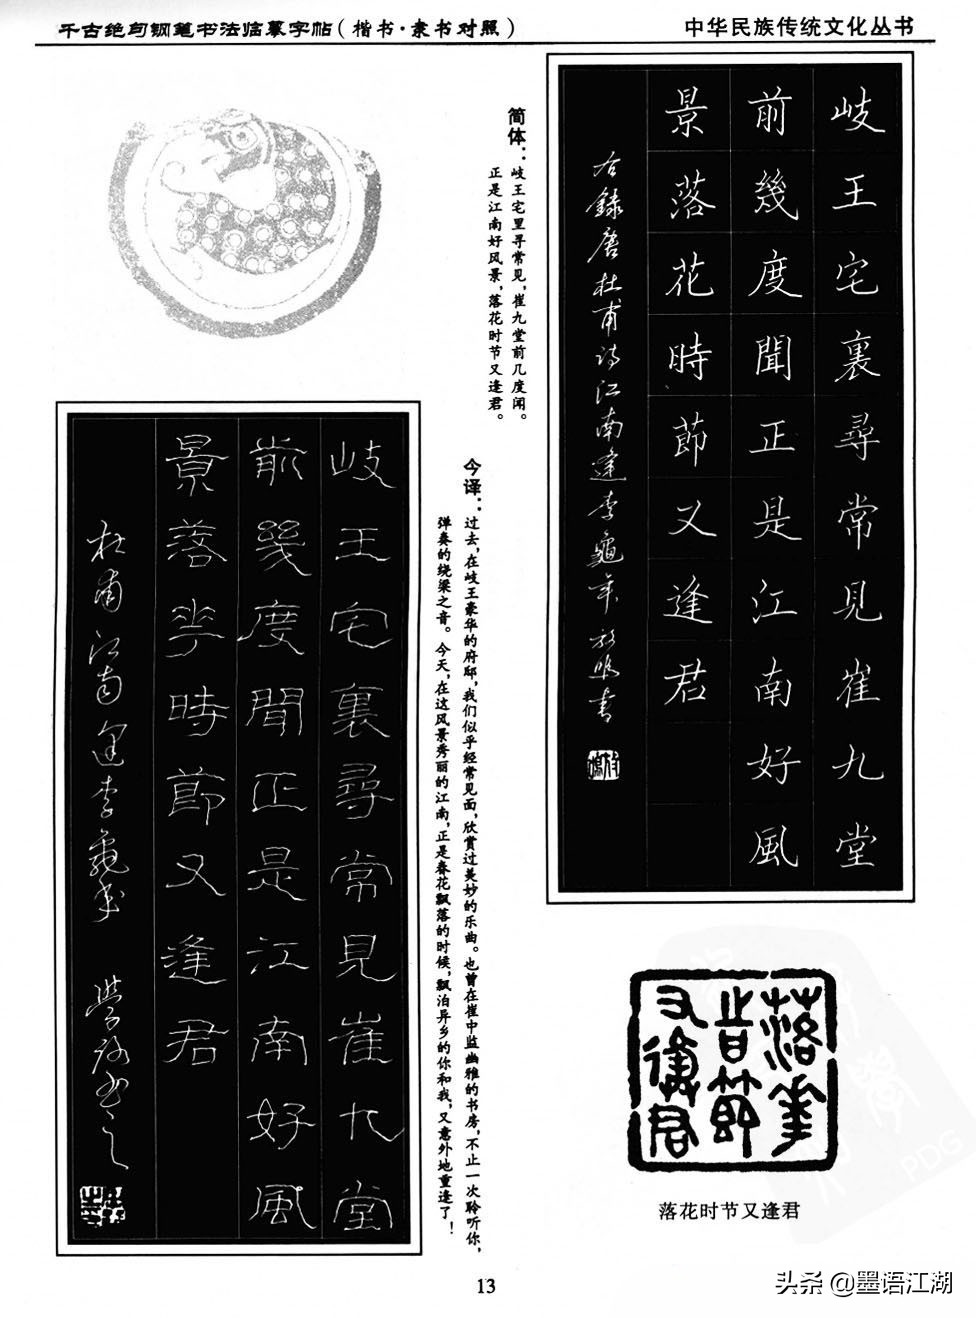 千古绝句钢笔书法临摹字帖(楷书·隶书对照)
中华民族传统文化丛书
岐王宅裏尋常見崔九堂
前幾度聞正是江南好風
景落花時節又逢君
右錄唐杜甫詩江南逢李龜年
简体：岐王宅里寻常见，崔九堂前几度闻。
正是江南好风景，落花时节又逢君。
今译：过去，在岐王豪华的府邸，我们似乎经常见面，欣赏过美妙的乐曲。也曾在崔中监幽雅的书房，不止一次聆听你，
弹奏的绕梁之音。今天，在这风景秀丽的江南，正是春花飘落的时候，飘泊异乡的你和我，又意外地重逢了！
岐王宅裏尋常見崔九堂
前幾度聞正是江南好風
景落花時節又逢君
杜甫江南逢李龜年
落花
時節
又逢君
落花时节又逢君
13
头条@墨语江湖
PDG